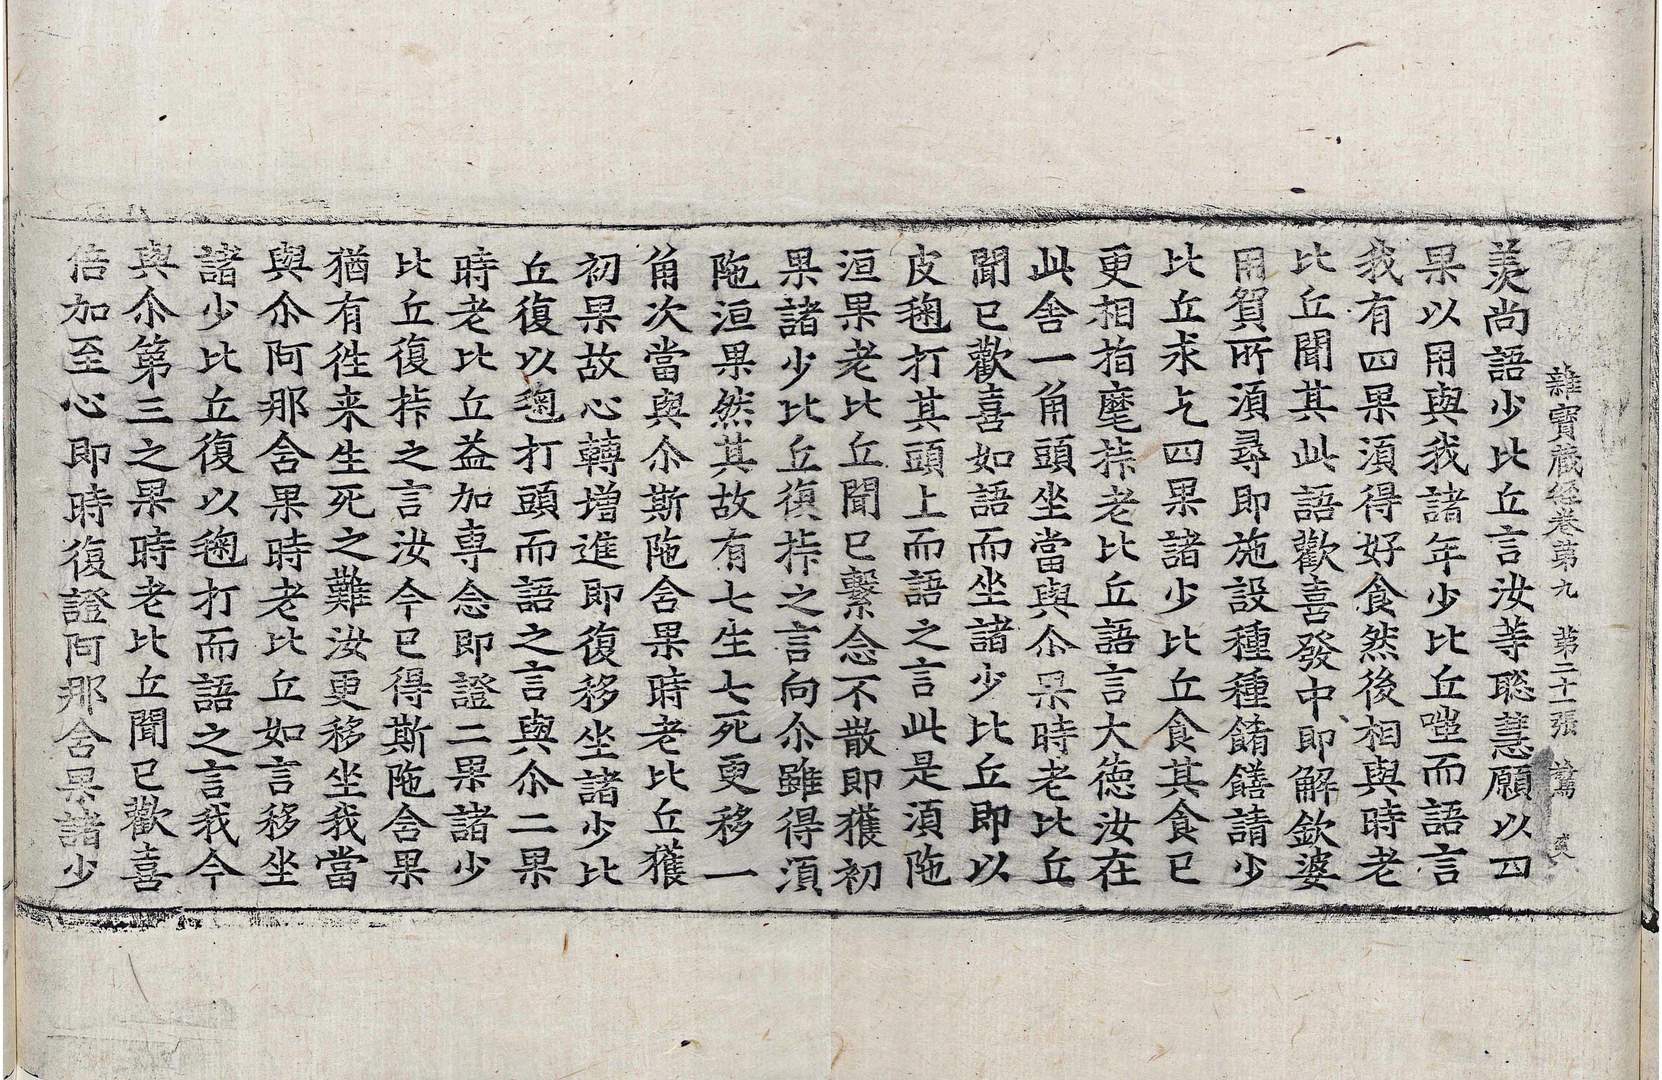 雜寶藏經卷第九 第二十一張 驚
羙尚語少比丘言汝等聡慧願以四
果以用與我諸年少比丘嗤而語言
我有四果湏得好食然後相與時老
比丘聞其此語歡喜發中即解欽婆
用貿所湏尋即施設種種餚饍請少
比丘求乞四果諸少比丘食其食已
更相指麾捽老比丘語言大德汝在
此舍一角頭坐當與尒果時老比丘
聞已歡喜如語而坐諸少比丘即以
皮毱打其頭上而語之言此是湏陁
洹果老比丘聞已繫念不散即獲初
果諸少比丘復捽之言向尒雖得湏
陁洹果然其故有七生七死更移一
角次當與尒斯陁舍果時老比丘獲
初果故心轉增進即復移坐諸少比
丘復以毱打頭而語之言與尒二果
時老比丘益加專念即證二果諸少
比丘復捽之言汝今已得斯陁舍果
猶有徃来生死之難汝更移坐我當
與尒阿那舍果時老比丘如言移坐
諸少比丘復以毱打而語之言我今
與尒第三之果時老比丘聞已歡喜
倍加至心即時復證阿那舍果諸少